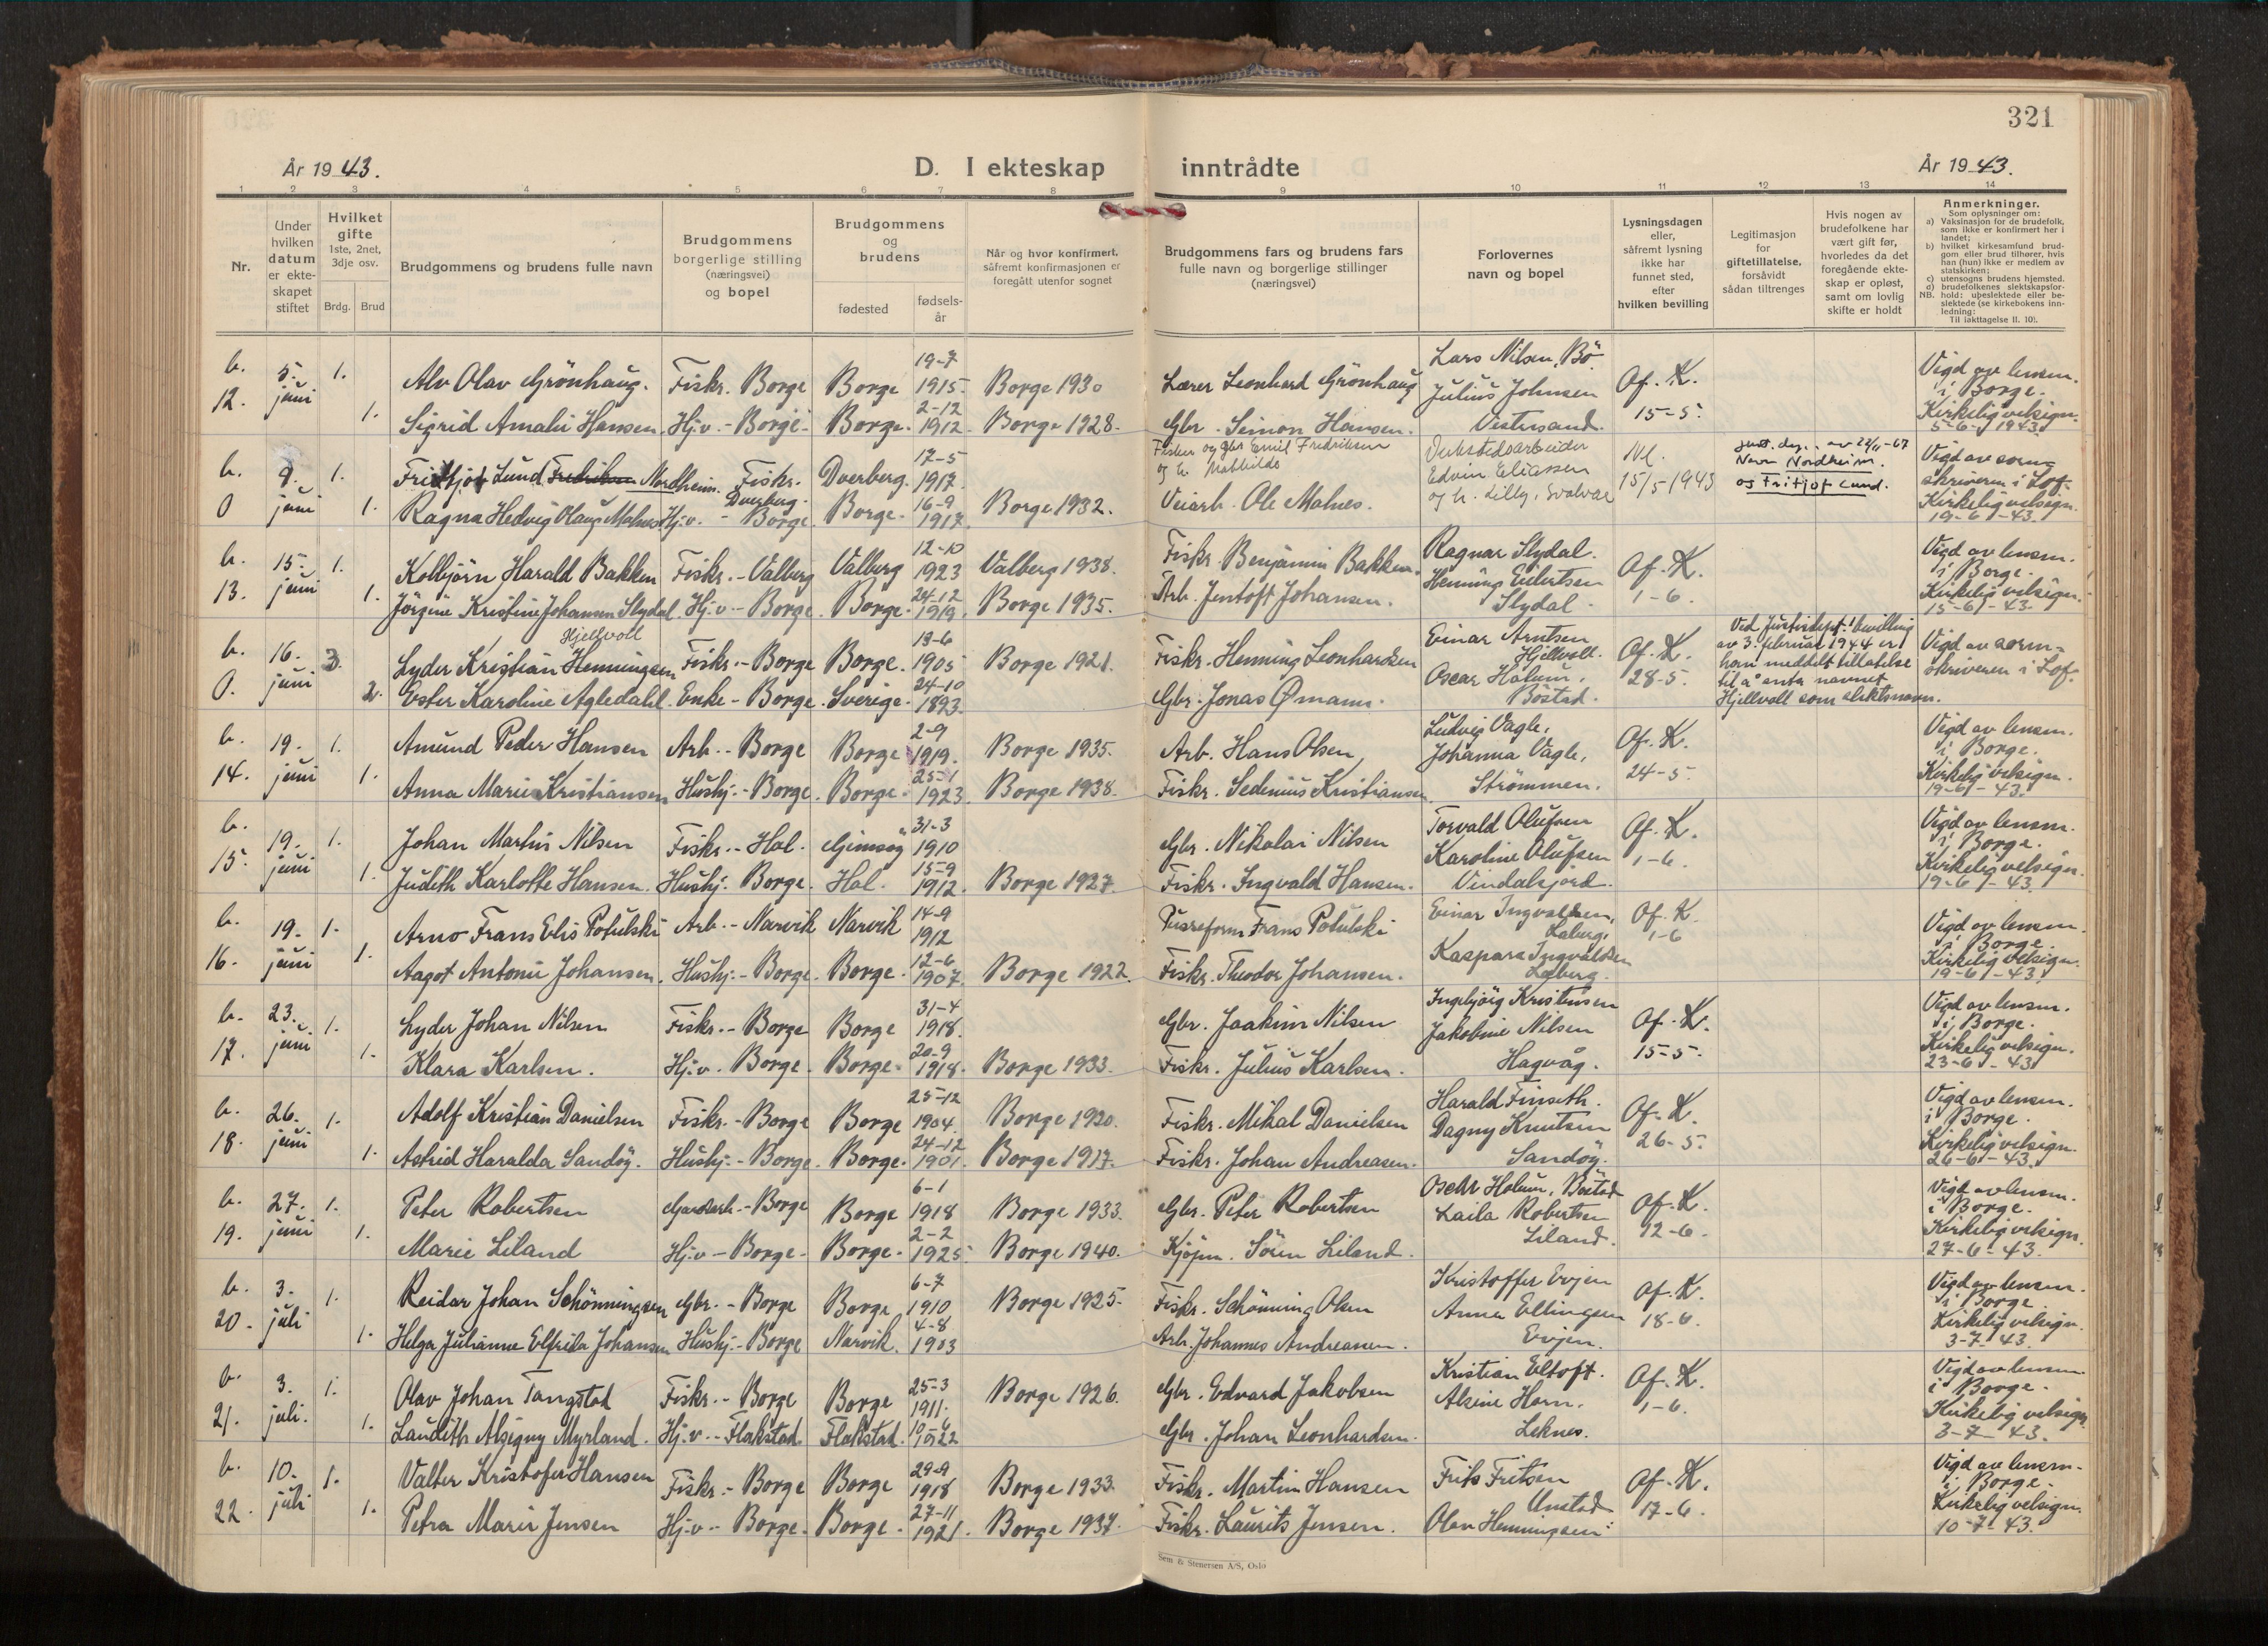 321
År 1943.
D. I ekteskap inntrådte
År 1943.
1 2 3 4 5 6 7 8 9 10 11 12 13 14
Nr.
Under hvilken datum er ekteskapet stiftet
Hvilket gifte
1ste, 2net, 3dje osv.
Brdg. Brud
Brudgommens og brudens fulle navn
Brudgommens borgerlige stilling (næringsvei) og bopel
Brudgommens og brudens
fødested
fødsels-år
Når og hvor konfirmert, såfremt konfirmasjonen er foregått utenfor sognet
Brudgommens fars og brudens fars fulle navn og borgerlige stillinger (næringsvei)
Forlovernes navn og bopel
Lysningsdagen eller, såfremt lysning ikke har funnet sted, efter hvilken bevilling
Legitimasjon for giftetillatelse, forsåvidt sådan tiltrenges
Hvis nogen av brudefolkene har vært gift før, hvorledes da det foregående ekteskap er opløst, samt om lovlig skifte er holdt
Anmerkninger.
Som oplysninger om:
a) Vaksinasjon for de brudefolk, som ikke er konfirmert her i landet;
b) hvilket kirkesamfund brudgom eller brud tilhører, hvis han (hun) ikke er medlem av statskirken;
c) utensogns brudens hjemsted.
d) brudefolkenes slektskapsforhold: ubeslektede eller beslektede (se kirkebokens innledning:
NB. Til iakttagelse II. 10).
b. 5. 1. Alv Olav Grönhaug. Fiskr. Borge Borge 19-7 1915. Borge 1930 Lærer Leonhard Grönhaug Lars Nilsen, Bö. Julius Johnsen Of. K. Vigd av lensm. i Borge.
12. juni 1. Sigrid Amalie Hansen. Hj.v. - Borge. Borge. 2-12 1912. Borge 1928. Gbr. Simon Hansen. Vestresand. 15-5. Kirkelig velsign. 5-6-1943.
b. 9. 1. Fritjof Lund Fredriksen Nordheim. Fiskr. Dverberg. Dverberg. 17-5 1917. Fisker og gbr Emil Fredriksen og h. Mathilde Verkstedsarbeider Edvin Eliassen Nl. Just. dep. av 22/11-67 Navn Nordheim. og Fritjof Lund. Vigd av soren-skriveren i Lof.
0 juni 1. Ragna Hedvig Olaug Malnes Hj.v. - Borge. Borge. 16-9 1917. Borge 1932. Veiarb. Ole Malnes. og h. Lilly, Svolvær 15/5 1943 Kirkelig velsign. 19-6-43.
b. 15. 1. Kolbjörn Harald Bakken Fiskr. - Valberg Valberg 12-10 1923 Valberg 1938. Fiskr. Benjamin Bakken. Ragnar Slydal. Of. K. Vigd av lensm. i Borge.
13. juni 1. Jörgine Kristine Johansen Slydal. Hj.v. - Borge. Borge. 24-12 1919. Borge 1935. Arb. Jentoft Johansen. Henning Eilertsen Slydal. 1-6. Kirkelig velsign. 15-6-43.
b. 16. 3. Lyder Kristian Henningsen Hjellvoll Fiskr. - Borge Borge. 13-6 1905 Borge 1921. Fiskr. Henning Leonhardsen Einar Arntsen Hjellvoll. Of. K. Ved Justisdept. bevilling av 3. februar 1944 er han meddelt tillatelse Vigd av soren-skriveren i Lof.
0. juni 2. Ester Karoline Agledahl. Enke - Borge. Sverige. 24-10 1893. Gbr. Jonas Ømann. Oscar Holum. Böstad. 28-5. til å anta navnet Hjellvoll som slektsnavn.
b. 19. 1. Amund Peder Hansen Arb. - Borge Borge 2-9 1919. Borge 1935. Arb. Hans Olsen, Ludvig Vagle, Johanna Vagle, Of. K. Vigd av lensm. i Borge.
14. juni 1. Anna Marie Kristiansen Hushj. - Borge. Borge. 25-1 1923. Borge 1938. Fiskr. Sedenius Kristiansen. Strömmen. 24-5. Kirkelig velsign. 19-6-43.
b. 19. 1. Johan Martin Nilsen Fiskr. - Hol. Gimsøy 31-3 1910 Gbr. Nikolai Nilsen Torvald Olufsen Of. K. Vigd av lensm. i Borge.
15. juni 1. Judith Karlotte Hansen. Hushj. Borge. Hol. 15-9 1912. Borge 1927. Fiskr. Ingvald Hansen. Karoline Olufsen Vindalsjord. 1-6. Kirkelig velsign. 19-6-43.
b. 19. 1. Arno Frans Elis Potulski Arb. - Narvik Narvik 14-9 1912 Frans Potulski Einar Ingvaldsen, Of. K. Vigd av lensm. i Borge.
16. juni 1. Aagot Antonie Johansen. Hushj. - Borge. Borge. 12-6 1907. Borge 1922. Fiskr. Theodor Johansen. Kaspara Ingvaldsen 1-6 Kirkelig velsign. 19-6-43.
b. 23. 1. Lyder Johan Nilsen Fiskr. - Borge Borge 31-4 1918. Gbr. Joakim Nilsen Ingebjörg Kristensen Of. K. Vigd av lensm. i Borge.
17. juni 1. Klara Karlsen. Hj.v. Borge. Borge. 20-9 1918. Borge 1933. Fiskr. Julius Karlsen. Jakobine Nilsen Hagvåg. 15-5. Kirkelig velsign. 23-6-43
b. 26. 1. Adolf Kristian Danielsen Fiskr. - Borge Borge 25-12 1904. Borge 1920. Fiskr. Mikal Danielsen Harald Finseth. Of. K. Vigd av lensm. i Borge.
18. juni 1. Astrid Haralda Sandöy. Hushj. - Borge. Borge. 24-12 1901. Borge 1917. Fiskr. Johan Andreasen. Dagny Knutsen Sandöy. 26-5. Kirkelig velsign. 26-6-43.
b. 27. 1. Peter Robertsen Gardsarb. - Borge Borge 6-1 1918 Borge 1933. Gbr. Peter Robertsen Oscar Holum, Böstad Of. K. Vigd av lensm. i Borge.
19. juni 1. Marie Liland Hj.v - Borge. Borge. 2-2 1925. Borge 1940. Kjöpm. Sören Liland. Laila Robertsen Liland. 12-6. Kirkelig velsign. 27-6-43.
b. 3. 1. Reidar Johan Schönningsen Gbr. - Borge Borge 6-7 1910 Borge 1925. Fiskr. Schönning Olsen Kristoffer Evjen Of. K. Vigd av lensm. i Borge
20. juli 1. Helga Julianne Elfrida Johansen Hushj. - Borge Narvik. 4-8 1903 Arb. Johannes Andreassen. Anna Ellingsen Evjen. 18-6. Kirkelig velsign. 3-7-43.
b. 3. 1. Olav Johan Tangstad Fiskr. - Borge Borge 25-3 1911. Borge 1926. Gbr. Edvard Jakobsen Kristian Eltoft. Of. K. Vigd av lensm i Borge.
21. juli. 1. Laudith Alsigny Myrland. Hj.v. - Flakstad. Flakstad. 1922 Gbr. Johan Leonhardsen. Alsine Horn. Leknes. 1-6. Kirkelig velsign 3-7-43.
b. 10. 1. Valter Kristofer Hansen Fiskr. - Borge Borge 29-9 1918 Borge 1933. Fiskr. Martin Hansen Frits Fritsen Unstad Of. K. Vigd av lensm. i Borge.
22. juli 1. Petra Marie Jensen Hj.v. - Borge. Borge. 27-11 1921. Borge 1937. Fiskr. Laurits Jensen. Olav Henningsen. 17-6. Kirkelig velsign. 10-7-43.
Sem & Stenersen A/S, Oslo